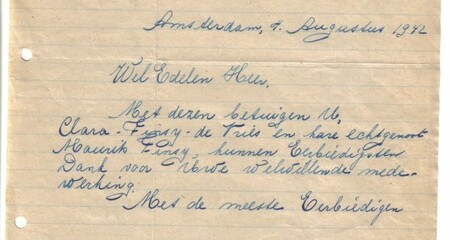 Amsterdam, 7. Augustus 1942
Wel Edelen Heer,
Met dezen betuigen U,
Clara - Finsy - de Vries en hare echtgenoot
Maurits Finsy, hunnen Eerbiedigsten
Dank voor Uwe welwillende mede-
werking.
Met de meeste Eerbiedigen